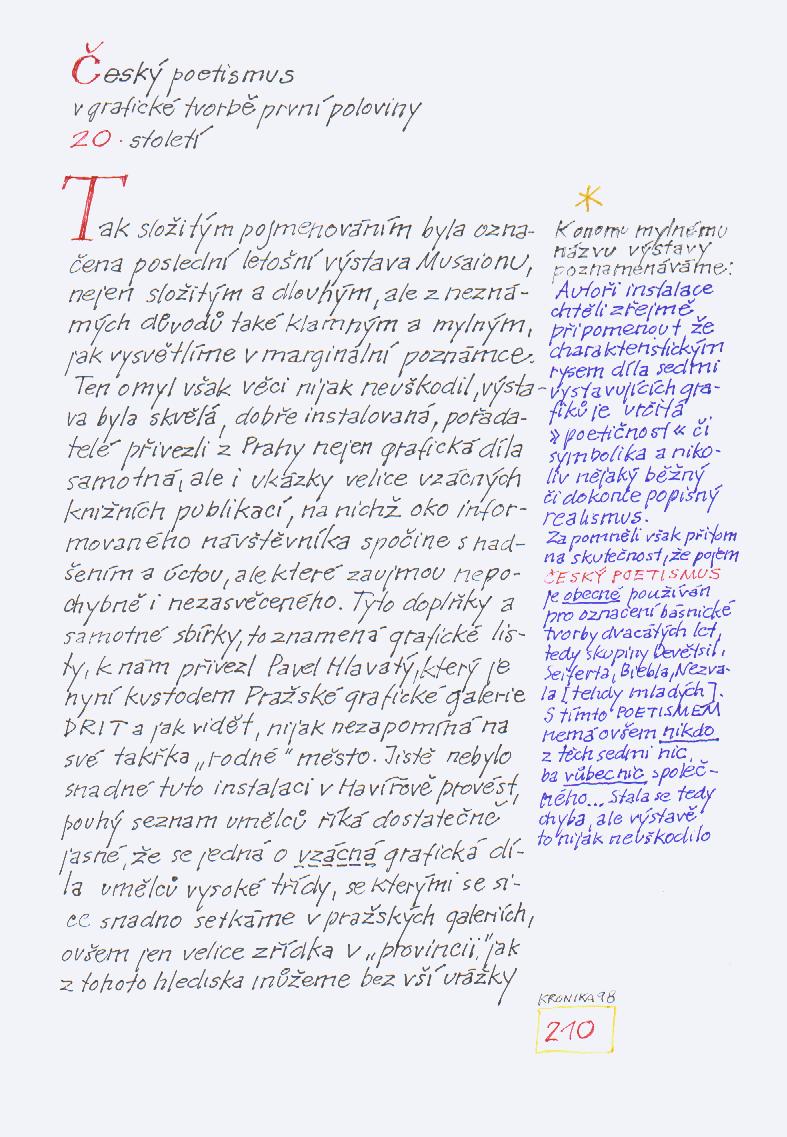 Český poetismus
v grafické tvorbě první poloviny
20. století
Tak složitým pojmenováním byla ozna-
čena poslední letošní výstava Musaionu,
nejen složitým a dlouhým, ale z nezná-
mých důvodů také klamným a mylným,
jak vysvětlíme v marginální poznámce.
Ten omyl však věci nijak neuškodil, výsta-
va byla skvělá, dobře instalovaná, pořada-
telé přivezli z Prahy nejen grafická díla
samotná, ale i ukázky velice vzácných
knižních publikací, na nichž oko infor-
movaného návštěvníka spočine s nad-
šením a úctou, ale které zaujmou nepo-
chybně i nezasvěceného. Tyto doplňky a
samotné sbírky, to znamená grafické lis-
ty, k nám přivezl Pavel Hlavatý, který je
nyní kustodem Pražské grafické galerie
DRIT a jak vidět, nijak nezapomíná na
své takřka „rodné" město. Jistě nebylo
snadné tuto instalaci v Havířově provést,
pouhý seznam umělců říká dostatečně
jasně, že se jedná o vzácná grafická dí-
la umělců vysoké třídy, se kterými se si-
ce snadno setkáme v pražských galeriích,
ovšem jen velice zřídka v „provincii," jak
z tohoto hlediska můžeme bez vší urážky
*
K onomu mylnému
názvu výstavy
poznamenáváme:
Autoři instalace
chtěli zřejmě
připomenout, že
charakteristickým
rysem díla sedmi
vystavujících gra-
fiků je určitá
»poetičnost« či
symbolika a niko-
liv nějaký běžný
či dokonce popisný
realismus.
Zapomněli však přitom
na skutečnost, že pojem
ČESKÝ POETISMUS
je obecně používán
pro označení básnické
tvorby dvacátých let,
tedy skupiny Devětsil,
Seiferta, Biebla, Nezva-
la [tehdy mladých].
S tímto POETISMEM
nemá ovšem nikdo
z těch sedmi nic,
ba vůbec nic společ-
ného... Stala se tedy
chyba, ale výstavě
to nijak neuškodilo
KRONIKA 98
210